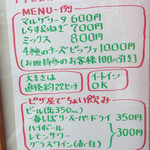 MENU一例
マルゲリータ 600円
しらす&ねぎ 700円
ミックス 800円
4種のチーズピッツァ 1000円
(お四持帰のお客様100円引き)
大きさは
直径約22センチ
イートイン
OK
ピザ屋でちょい飲み
ビール(缶) 350円
一番しぼり・スーパードライ
ハイボール 350円
レモンサワー
グラスワイン(赤・白) 300円